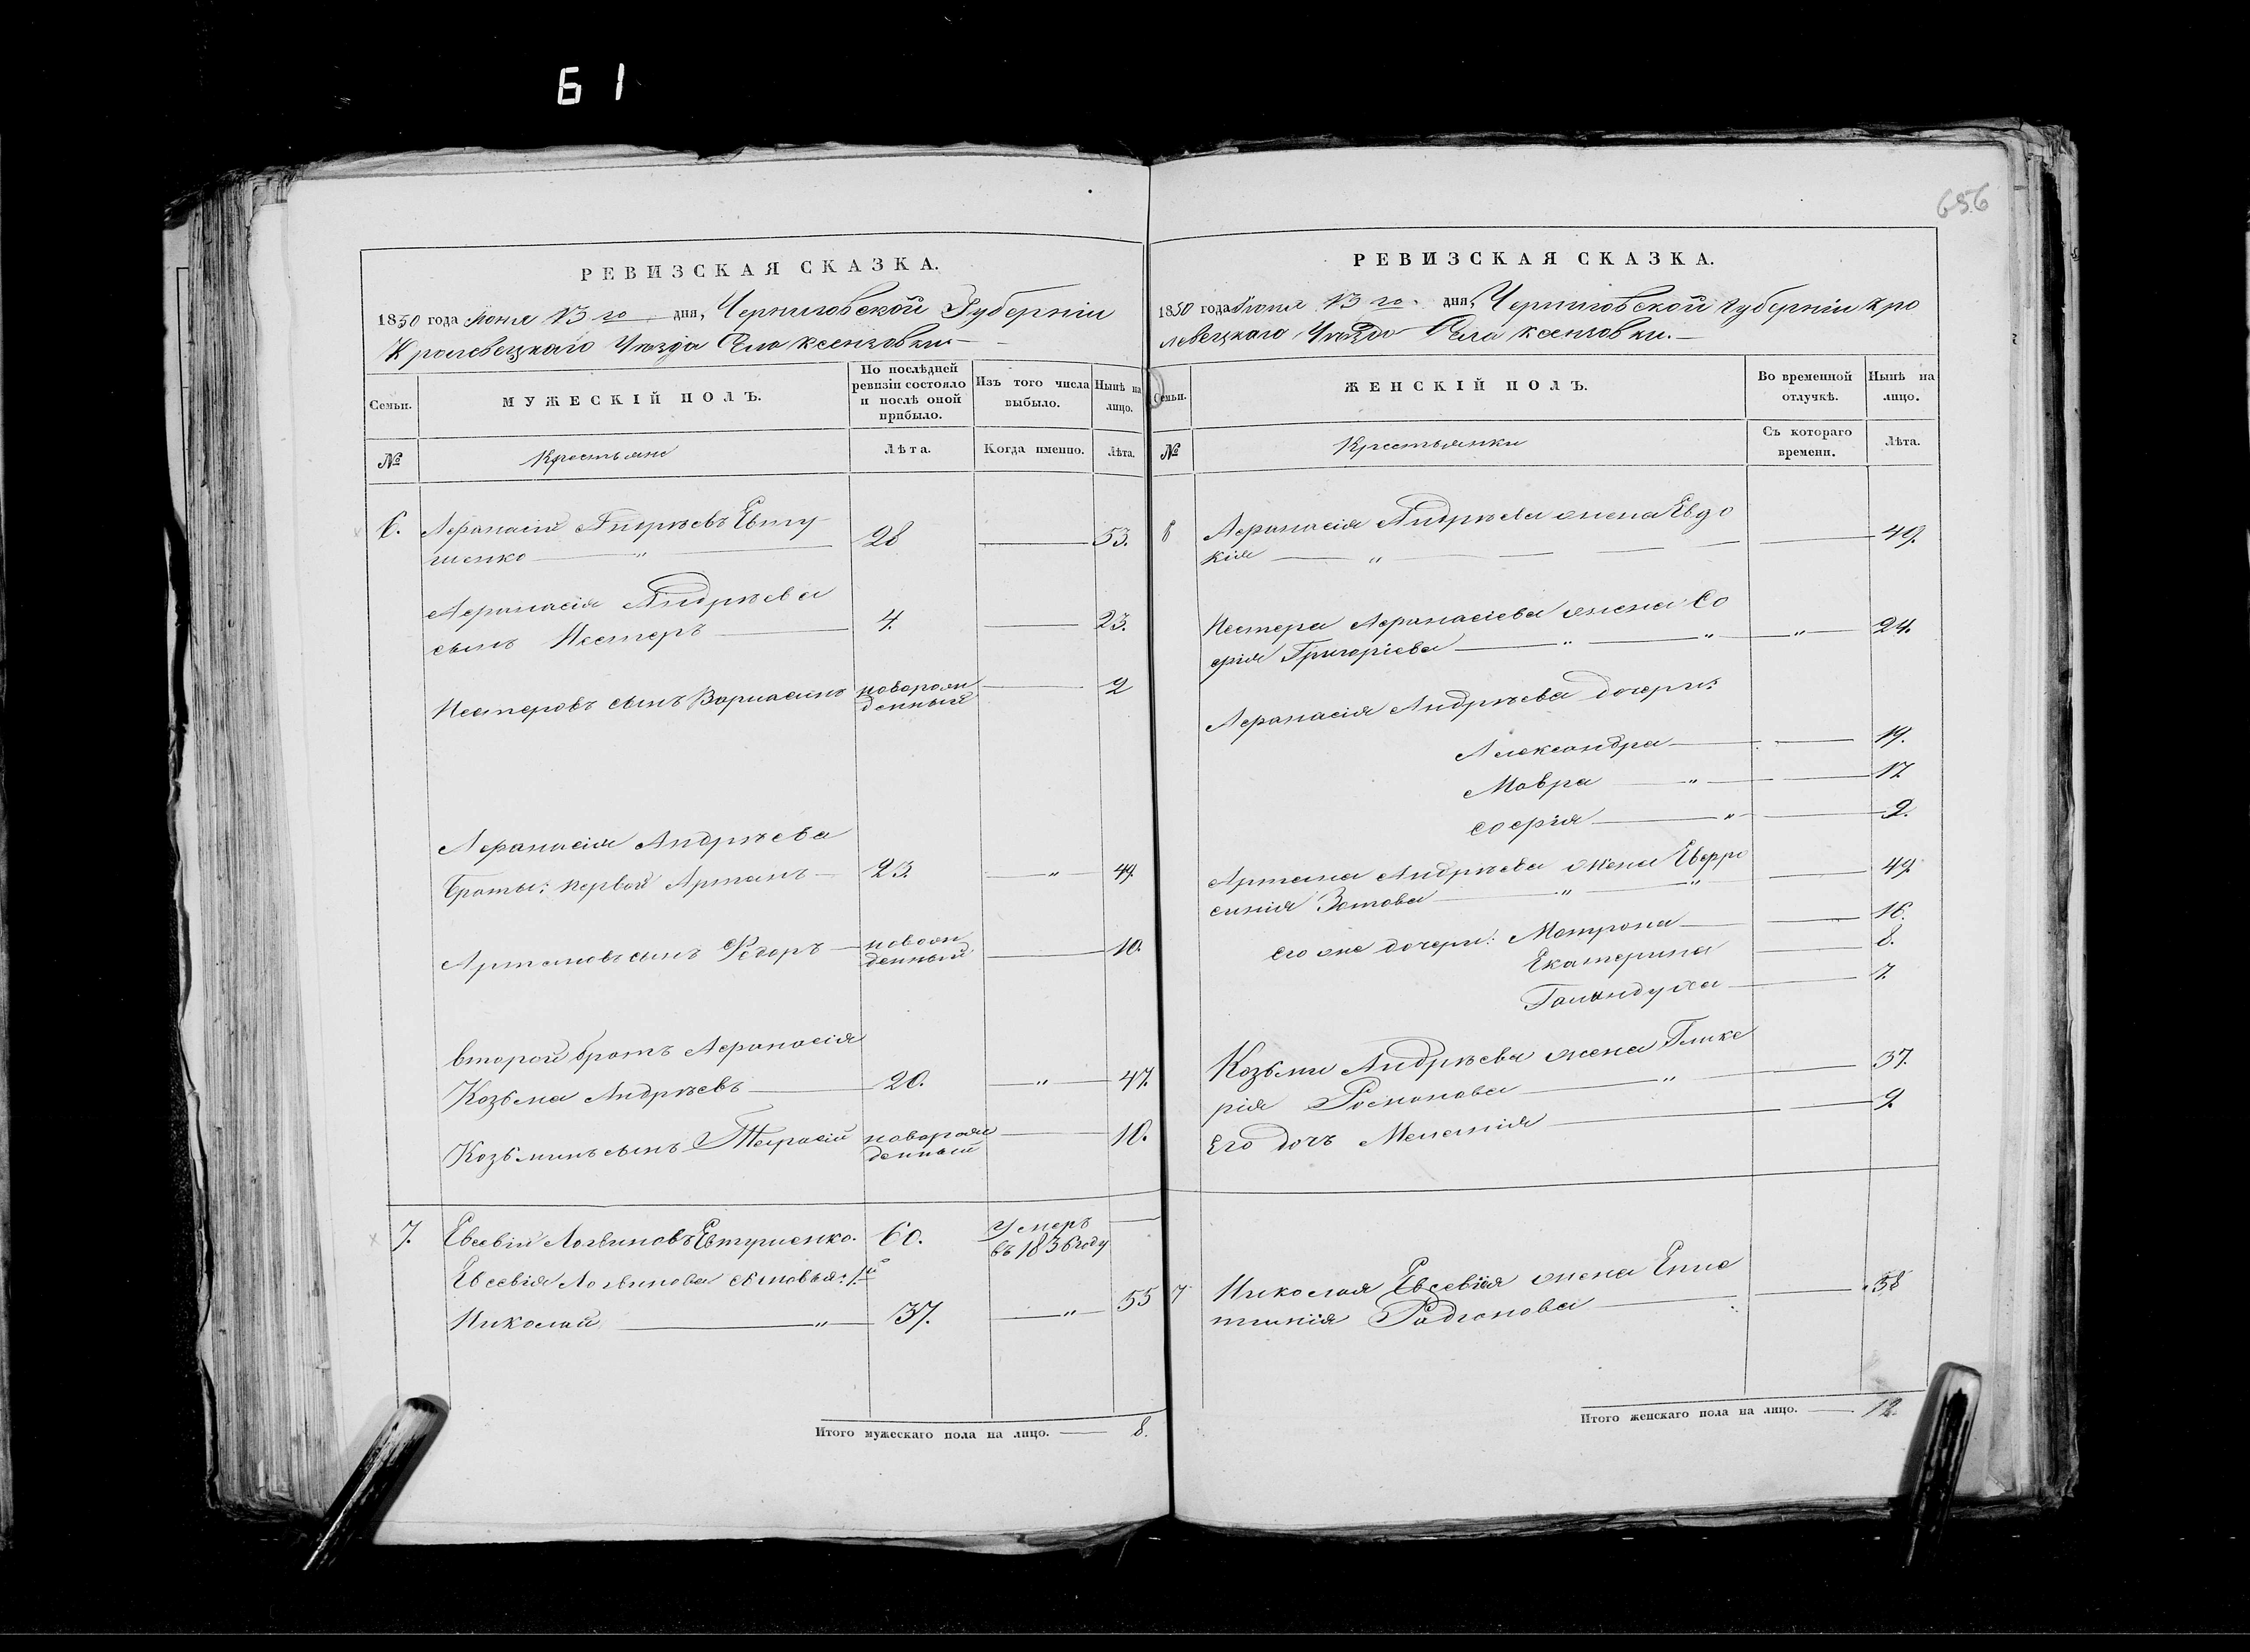 61
656
РЕВИЗСКАЯ СКАЗКА.
1850 года Июня 13 го дня, Черниговской Губерніи
Кролевецкаго Уѣзда Села Ксензовки
Семьи.
МУЖЕСКІЙ ПОЛЪ.
По послѣдней ревизіи состояло и послѣ оной прибыло.
Изъ того числа выбыло.
Нынѣ на лицо.
№
Крестьяне
Лѣта.
Когда именно.
Лѣта.
6. Афанасій Андрѣевъ Евту
шенко 28 53.
Афанасія Андрѣева
сынъ Нестеръ 4. 23.
Нестеровъ сынъ новорож
денный 2
Афанасія Андрѣева
Братья: первой Артамъ 23 49.
сынъ Федоръ новорж
денный 10.
второй братъ Афанасія
Козьма Андрѣевъ 20. 47.
Козьминъ сынъ новорож
денный 10.
7. Евсевій Логвиновъ 60. Умеръ
въ 1836 году
Евсевія Логвинова сыновья: 1й
Николай 37. 55
Итого мужескаго пола на лицо. 8.
РЕВИЗСКАЯ СКАЗКА.
1850 года Июня 13 го дня, Черниговской губерніи Кро
левецкаго Уѣзда Села Ксензовки.
Семьи.
ЖЕНСКІЙ ПОЛЪ.
Во временной отлучкѣ.
Нынѣ на лицо.
№
Крестьянки
Съ котораго времени.
Лѣта.
6 Афанасія Андрѣева жена Евдо
кія 49.
Нестера Афанасіева жена Со
фія Григоріева 24.
Афанасія Андрѣева дочери:
Александра 19.
Мавра 17
Софія 9.
Артама Андрѣева жена Евфро
синія Зотова 49
его же дочери: Матрона 16.
Екатерина 8.
7.
Козьмы Андрѣева жена Глике
рія 37.
Его дочь Меланія 9.
7 Николая Евсевія жена
Родіонова 58
Итого женскаго пола на лицо. 12.